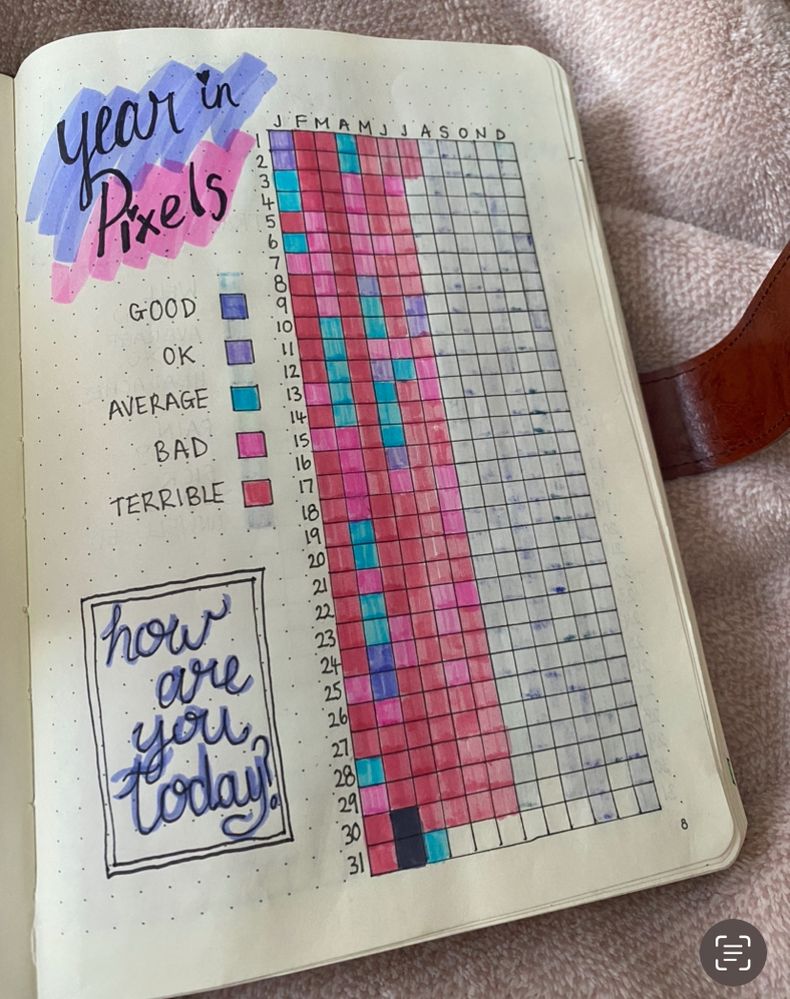 Year in
Pixels
GOOD
OK
AVERAGE
BAD
TERRIBLE
how
are
you
today?
J F M A M J J A S O N D
1
2
3
4
5
6
7
8
9
10
11
12
13
14
15
16
17
18
19
20
21
22
23
24
25
26
27
28
29
30
31
8